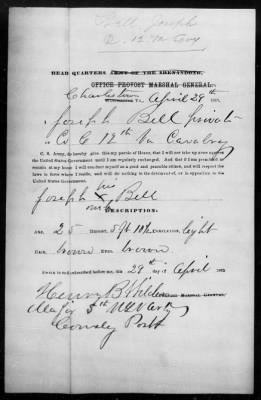 Bell Joseph
12 Va Cav
HEAD QUARTERS ARMY OF THE SHENANDOAH,
OFFICE PROVOST MARSHAL GENERAL,
Charlestown Va., April 29th, 1865.
I, Joseph Bell private
Co C 12th Va Cavalry
C. S. Army, do hereby give this my parole of Honor, that I will not take up arms against
the United States Government until I am regularly exchanged. And that if I am permitted to
remain at my home I will conduct myself as a good and peaceable citizen, and will respect the
laws in force where I reside, and will do nothing to the detriment of, or in opposition to the
United States Government.
his
Joseph X Bell
mark
DESCRIPTION:
AGE, 25 HEIGHT, 5 ft 10 in COMPLEXION, light
HAIR, brown EYES, brown
Sworn to and subscribed before me, this 29th day of April 1865
Henry B
PROVOST MARSHAL GENERAL.
Major 5th
Comdg Post